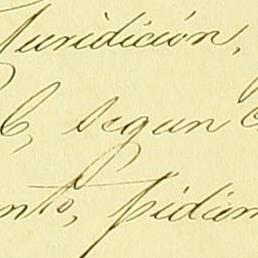 Juridición,
b, segun
nto, pidien